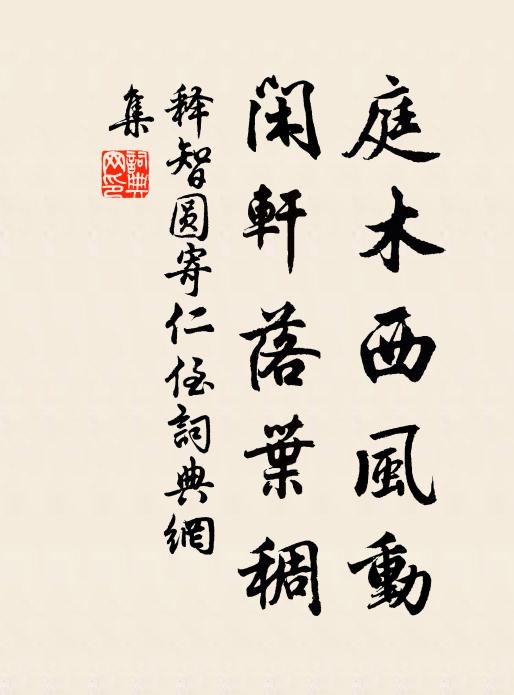 庭木西風動
閑軒落葉稠
释智圓寄仁侄詞典網
集
詞典網印